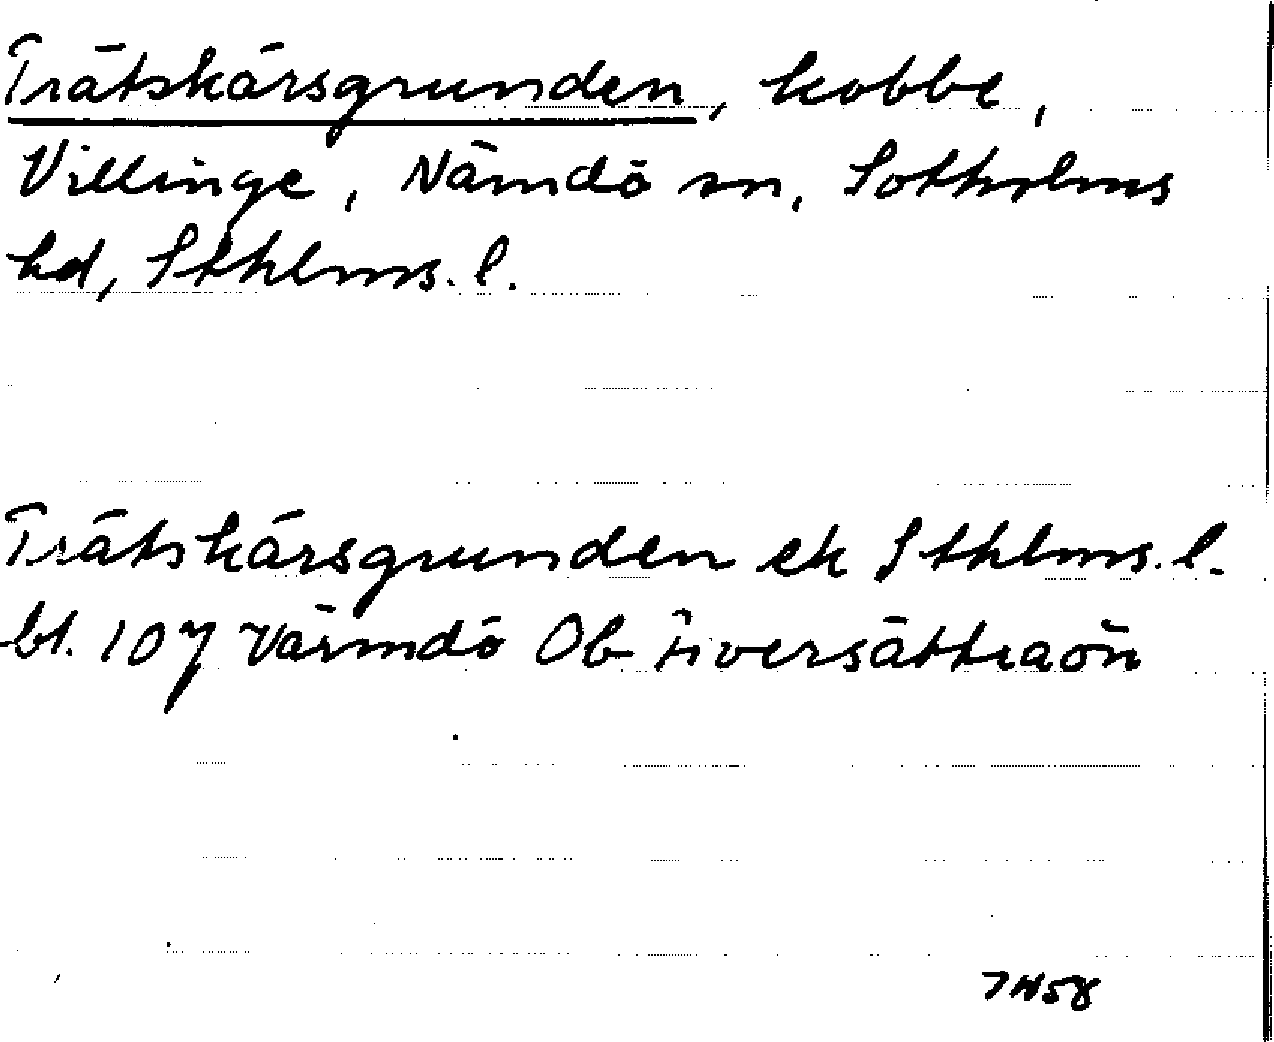 Trätskärsgrunden, kobbe,
Villinge, Nämdö sn, Sotholms
hd, Sthlms. l.
Trätskärsgrunden ek Sthlms. l.
bl. 107 Värmdö Ob